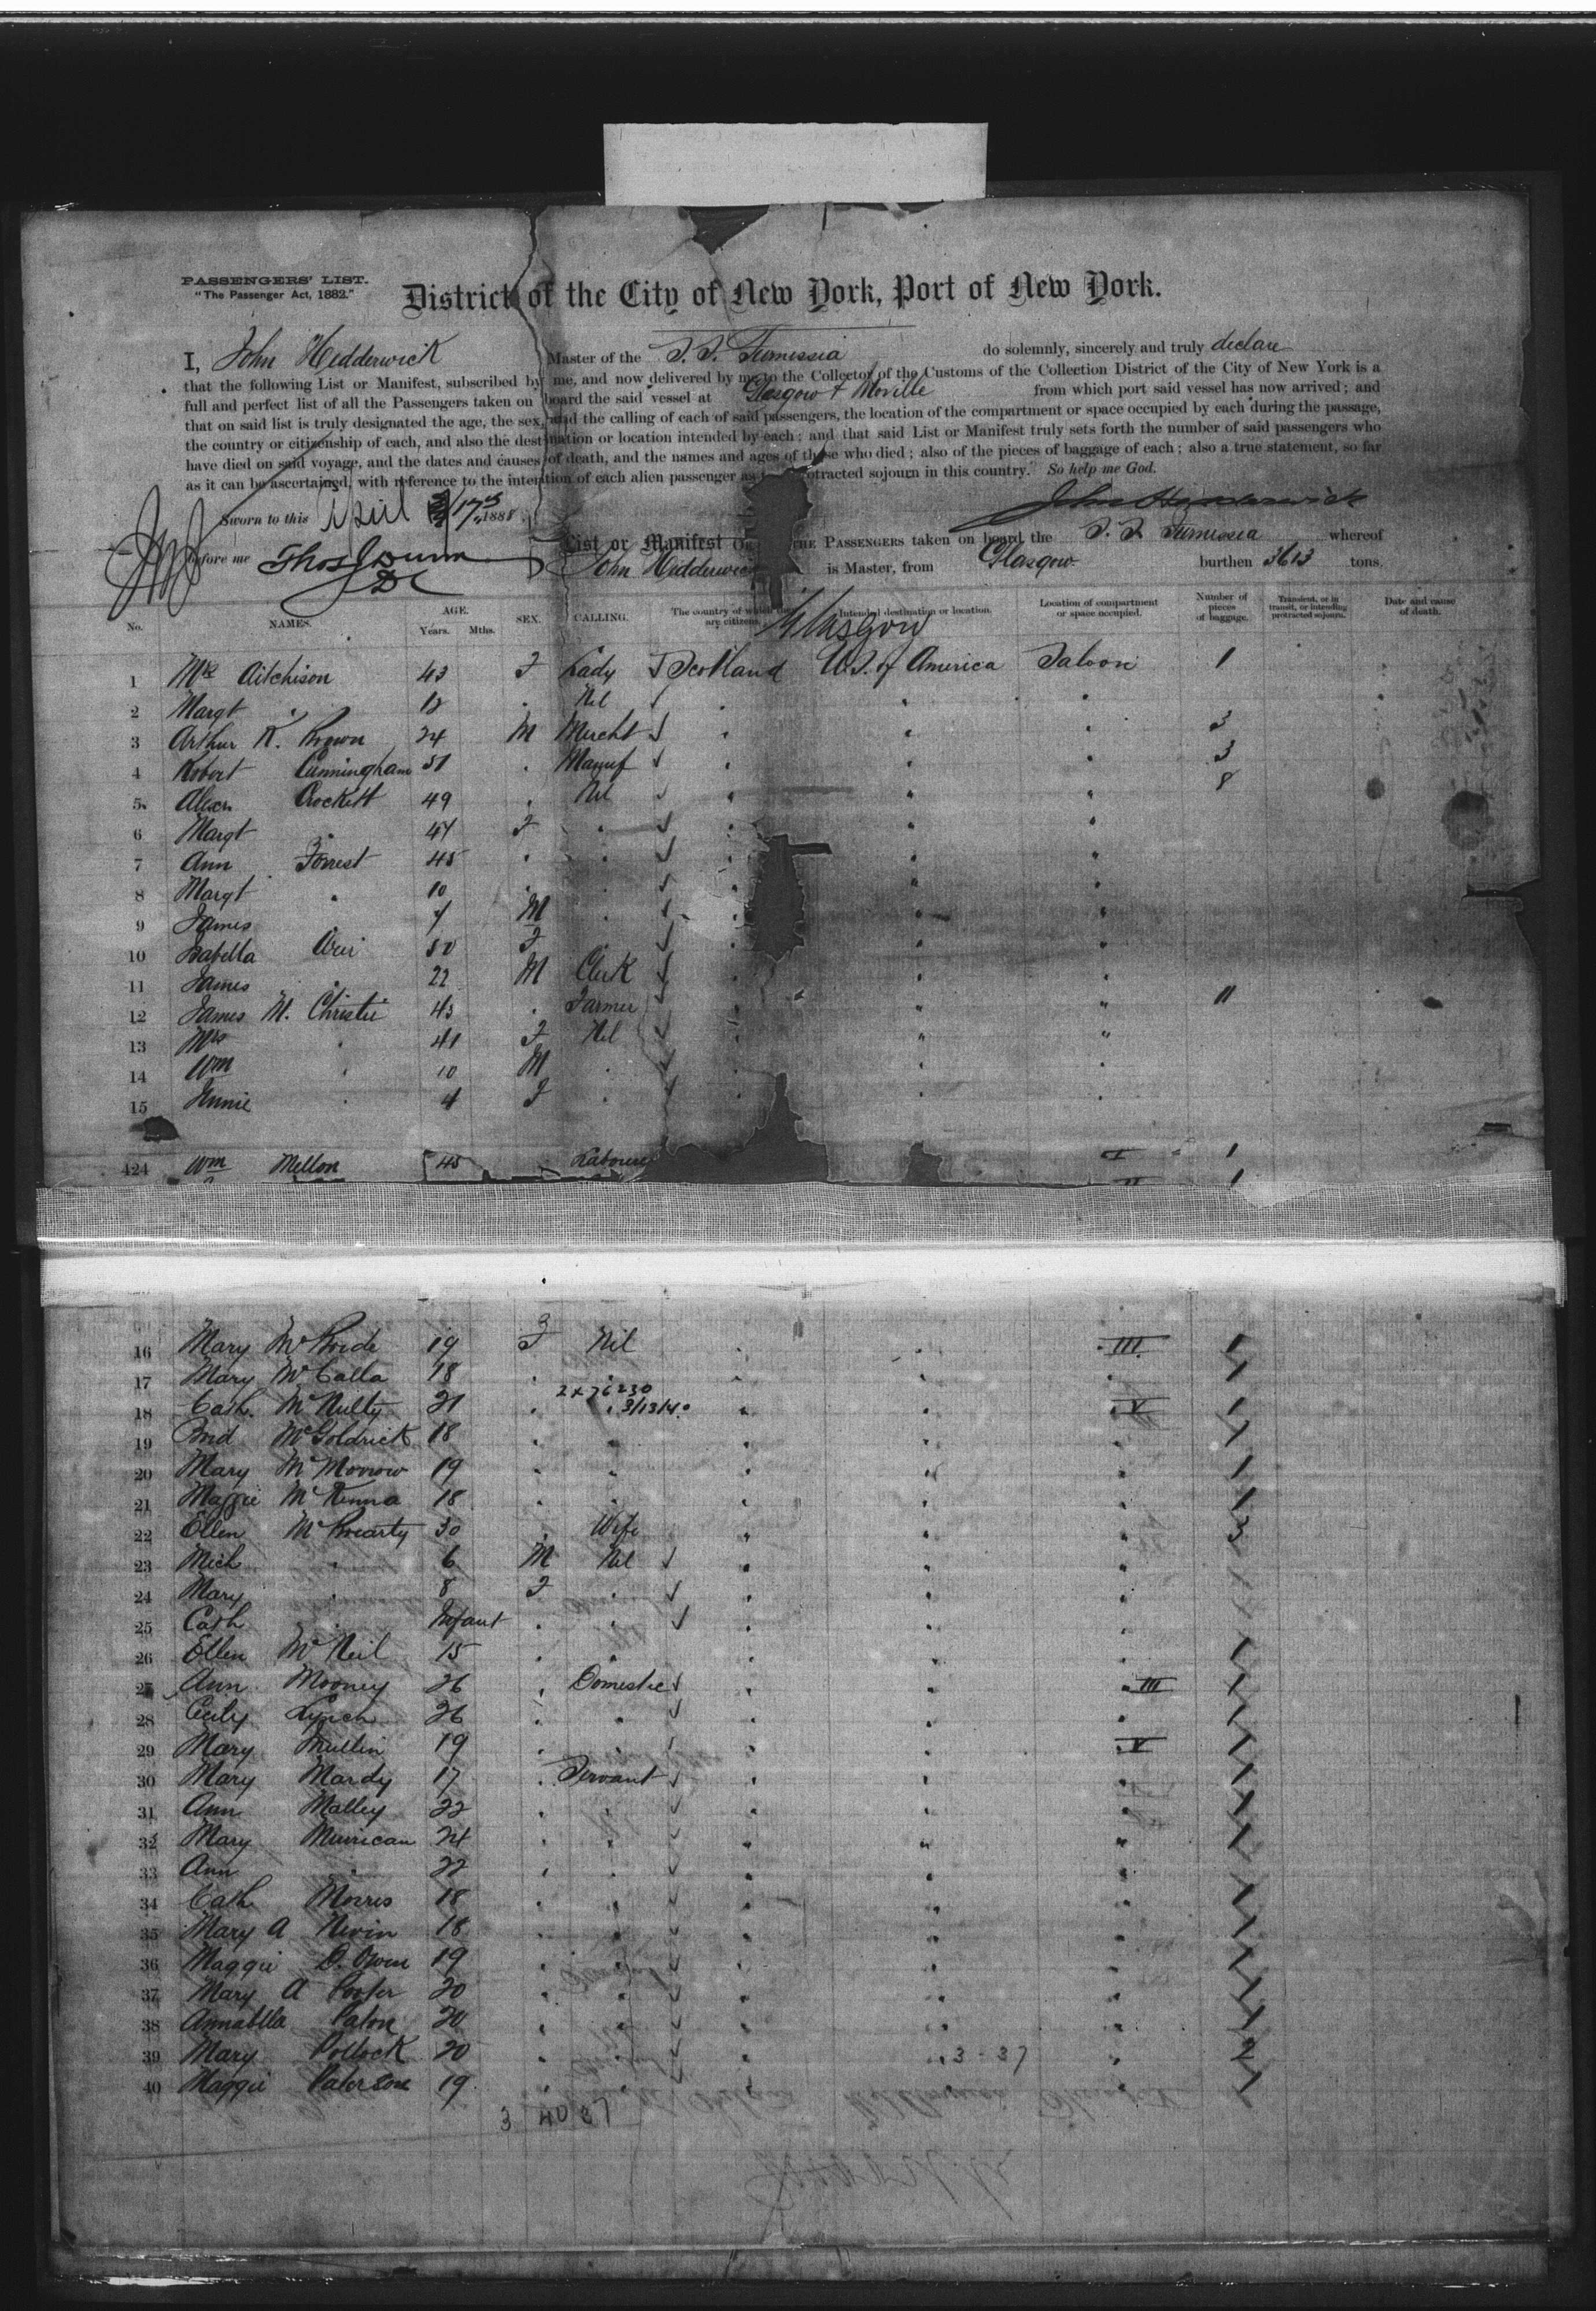 PASSENGERS' LIST.
"The Passenger Act, 1882."
District of the City of New York, Port of New York.
I, John Hedderwick Master of the S.S. Furnessia do solemnly, sincerely and truly declare
that the following List or Manifest, subscribed by me, and now delivered by me to the Collector of the Customs of the Collection District of the City of New York is a
full and perfect list of all the Passengers taken on board the said vessel at Glasgow & Moville from which port said vessel has now arrived; and
that on said list is truly designated the age, the sex, and the calling of each of said passengers, the location of the compartment or space occupied by each during the passage,
the country or citizenship of each, and also the destination or location intended by each; and that said List or Manifest truly sets forth the number of said passengers who
have died on said voyage, and the dates and causes of death, and the names and ages of those who died; also of the pieces of baggage of each; also a true statement, so far
as it can be ascertained, with reference to the intention of each alien passenger as to protracted sojourn in this country. So help me God.
Sworn to this April 17th 1888 John Hedderwick
before me Thos J Dunn DC
List or Manifest OF THE PASSENGERS taken on board the S.S. Furnessia whereof
John Hedderwick is Master, from Glasgow burthen 3613 tons.
No. NAMES. AGE. Years. Mths. SEX. CALLING. The country of which they are citizens. Intended destination or location. Location of compartment or space occupied. Number of pieces of baggage. Transient, or in transit, or intending protracted sojourn. Date and cause of death.
Glasgow
1 Mrs Aitchison 43 F Lady Scotland U.S. of America Saloon 1
2 Margt " 12 . Nil
3 Arthur K. Brown 24 M Mercht 3
4 Robert Cunningham 51 . Manuf 3
5 Alexr Crockett 49 . Nil 8
6 Margt " 47 F
7 Ann Forrest 45
8 Margt " 10
9 James 7 M
10 Isabella Weir 50 F
11 James " 22 M Clerk
12 James M. Christie 43 . Farmer 11
13 Mrs " 41 F Nil
14 Wm " 10 M
15 Annie " 4 F
424 Wm Mellon 45 Labourer I 1
II 1
16 Mary McBride 19 F Nil III 1
17 Mary McCalla 18 1
2 x 76230
18 Cath. McNulty 21 3/13/40 V 1
19 Brid McGoldrick 18 1
20 Mary McMorrow 19 1
21 Maggie McKenna 18 1
22 Ellen McBrearty 30 Wife 3
23 Mich " 6 M Nil
24 Mary " 8 F
25 Cath " Infant
26 Ellen McNeil 15 1
27 Ann Mooney 26 Domestic III 1
28 Cecily Lynch 26 1
29 Mary Mullin 19 V 1
30 Mary Mardy 17 Servant 1
31 Ann Malley 22 1
32 Mary Murrican 24 1
33 Ann " 22
34 Cath Morris 18 1
35 Mary A Nevin 18 1
36 Maggie 19 1
37 Mary A Porter 20 1
38 Annabella Paton 20 1
39 Mary Pollock 20 3 - 37 2
40 Maggie Paterson 19 1
3 40 37